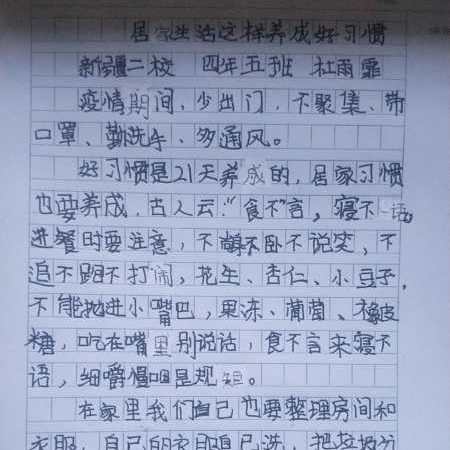 居家生活这样养成好习惯
新疆二校 四年五班 杜雨霏
疫情期间，少出门，不聚集、带
口罩、勤洗手、多通风。
好习惯是21天养成的，居家习惯
也要养成，古人云：“食不言，寝不语
进餐时要注意，不躺不卧不说笑，不
追不跑不打闹，花生、杏仁、小豆子，
不能抛进小嘴巴，果冻、葡萄、橡皮
糖，吃在嘴里别说话，食不言来寝不
语，细嚼慢咽是规矩。
在家里我们自己也要整理房间和
衣服，自己的衣服自己洗，把垃圾分